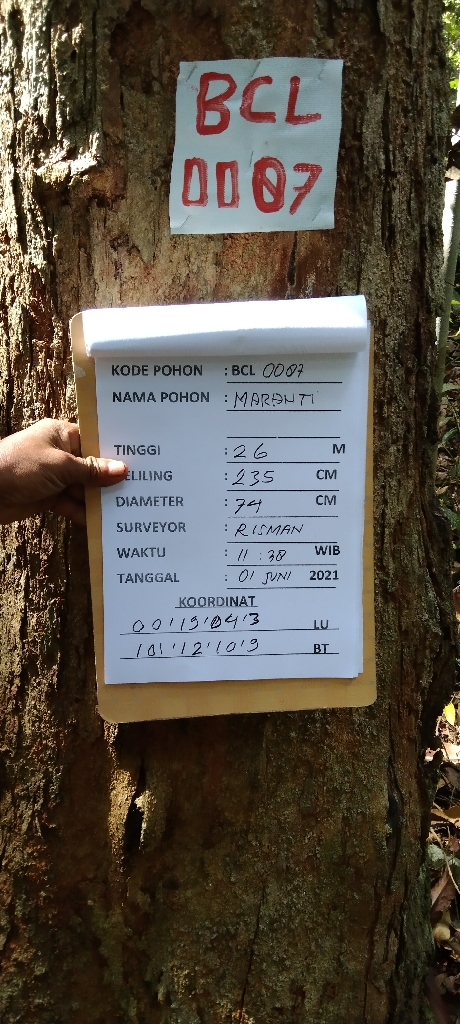 BCL
0007
KODE POHON : BCL 0007
NAMA POHON : MARANTI
TINGGI : 26 M
KELILING : 235 CM
DIAMETER : 74 CM
SURVEYOR : RISMAN
WAKTU : 11 : 38 WIB
TANGGAL : 01 JUNI 2021
KOORDINAT
00'19'04'3 LU
101'12'10'9 BT